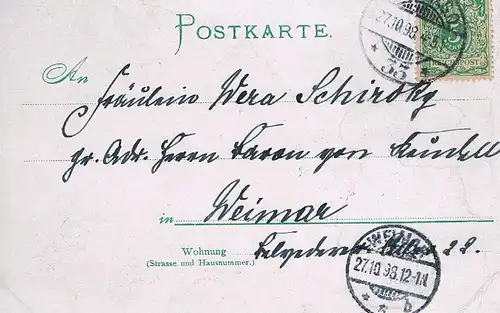 POSTKARTE.
27.10.98.
* 35 *
REICHSPOST
An
Fräulein Vera Schirsky
pr. Adr. Herrn Baron von Keudell
in Weimar
Wohnung
(Strasse und Hausnummer.)
Belvederer Allee 22.
WEIMAR
27.10.98.12-1N.
* b